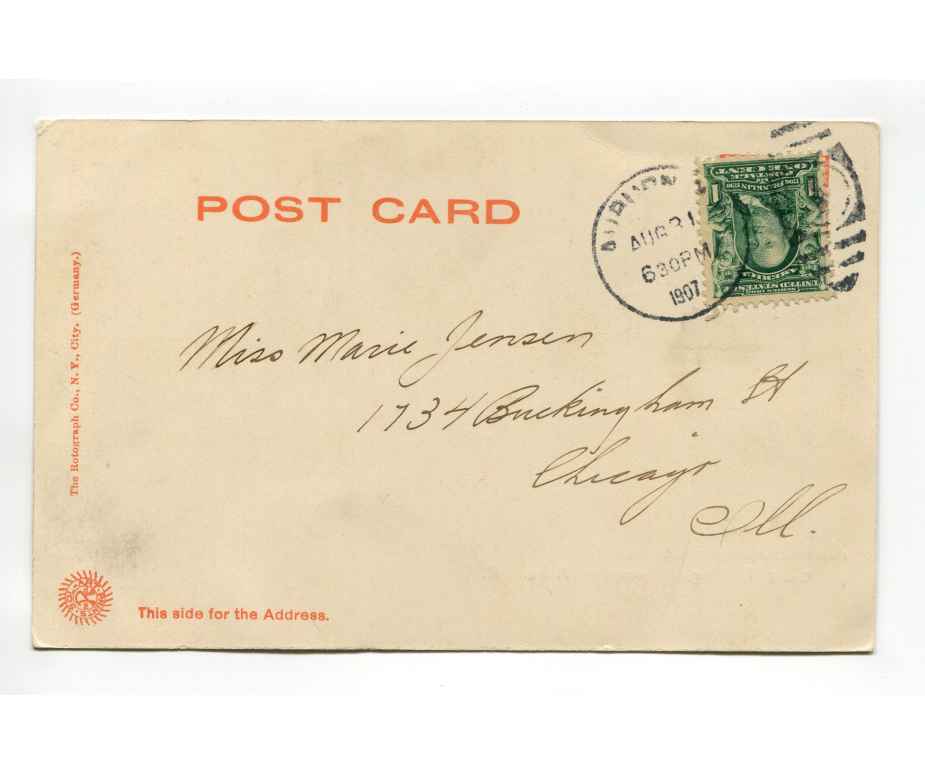 POST CARD
AUBURN
AUG 31
630PM
1907
ONE CENT
POSTAGE
FRANKLIN
1 1
AMERICA
UNITED STATES OF
Miss Marie Jensen
1734 Buckingham St
Chicago
Ill.
The Rotograph Co., N. Y., City. (Germany.)
This side for the Address.